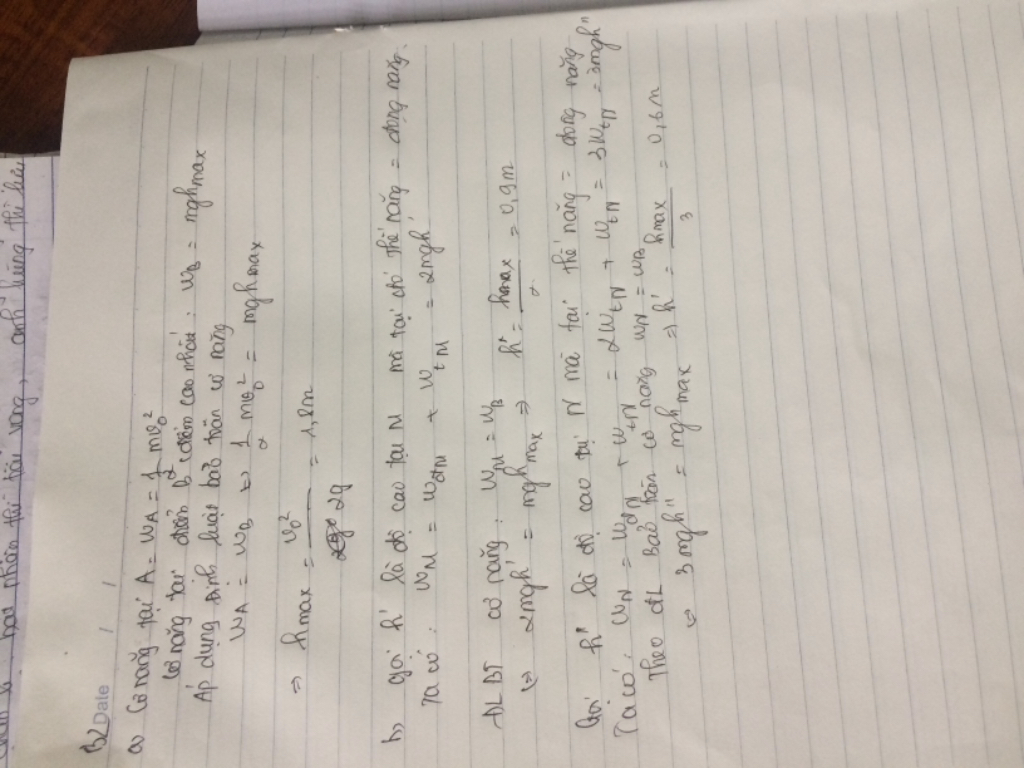 B2 Date / /
a) Cơ năng tại A = WA = 1/2 mv0²
Cơ năng tại điểm B (điểm cao nhất: WB = mghmax
Áp dụng định luật bảo toàn cơ năng
WA = WB ⇔ 1/2 mv0² = mghmax
⇒ hmax = v0² / 2g = 1,8m
b) gọi h' là độ cao tại M mà tại đó thế năng = động năng.
Ta có: WM = WđM + WtM = 2mgh'
ĐL BT cơ năng: WM = WB
⇔ 2mgh' = mghmax ⇒ h' = hmax / 2 = 0,9m
Gọi h" là độ cao tại N mà tại thế năng = động năng
Ta có: WN = WđN + WtN = 2WtN + WtN = 3WtN = 3mgh"
Theo ĐL Bảo toàn cơ năng WN = WB
⇔ 3mgh" = mghmax ⇒ h' = hmax / 3 = 0,6m